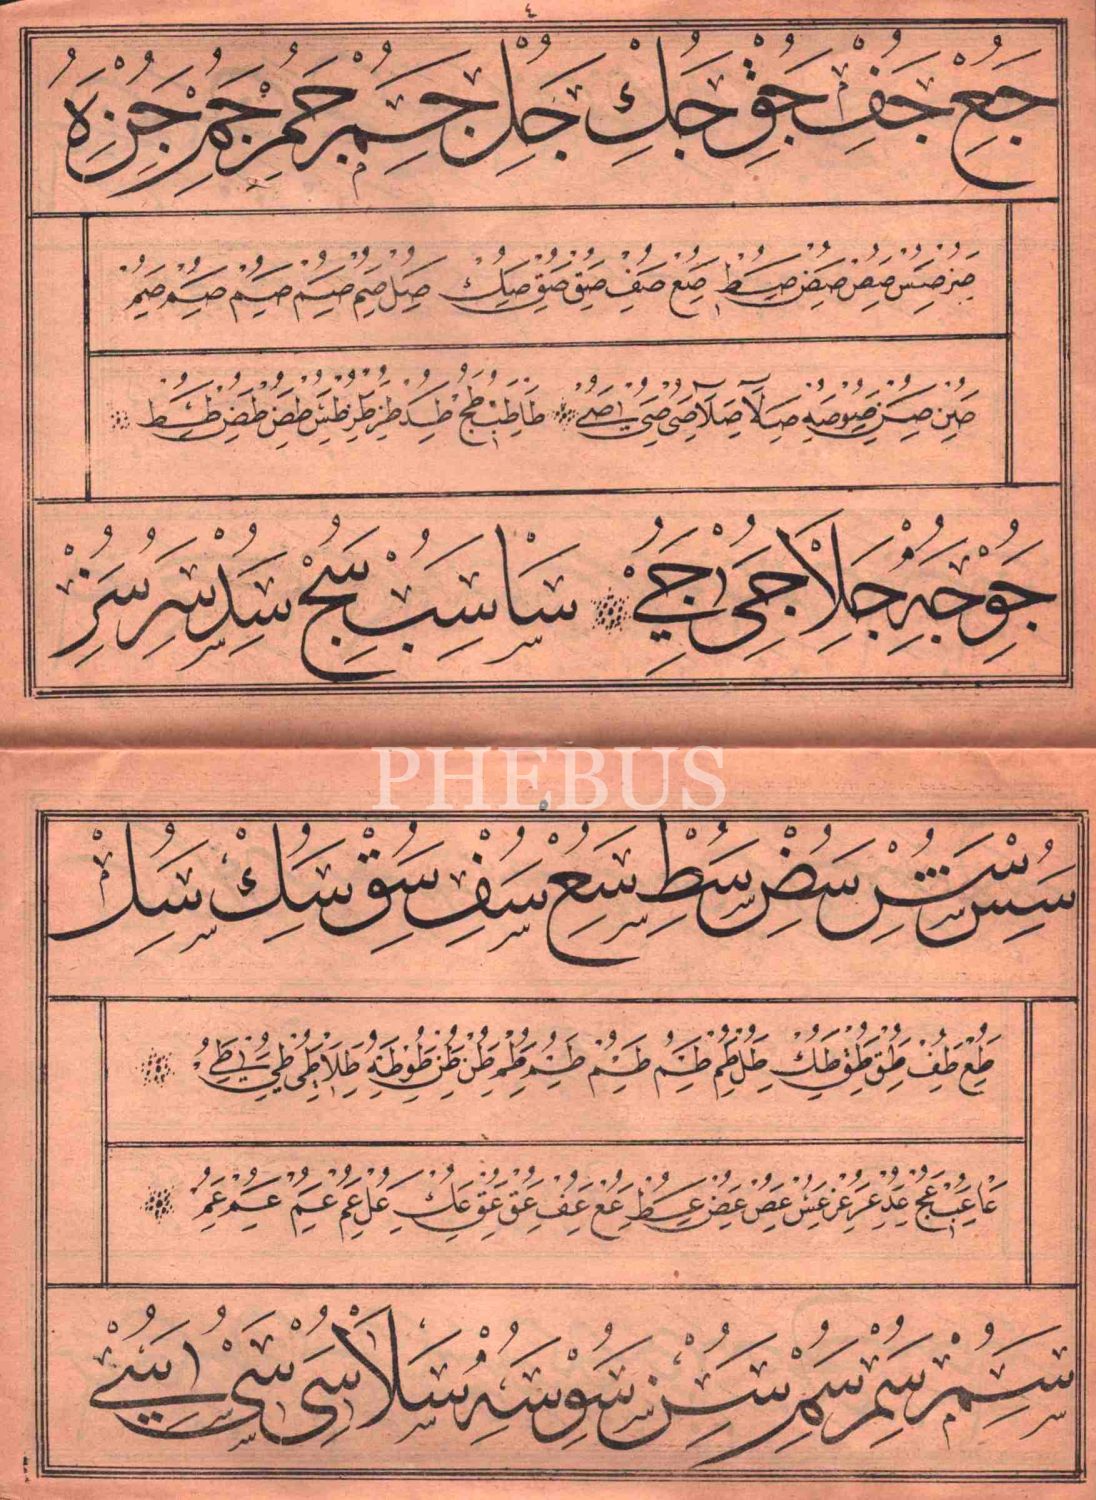 ٤
جع جف جق جك جل جم جم جم جم جن ه
صر صس صص صض صط صع صف صق صق صك صل صم صم صم صم صم
صن صن صو صه صلا صلا صى صى صے طا طب طج طد طر طر طس طص طض طط
جو جه جلا جى جے سا سب سج سد سر سز
PHEBUS
سس سش سض سط سع سف سق سك سل
طع طف طق طق طك طل طم طم طم طم طم طن طن طو طه طلا طى طى طے
عا عب عج عد عر عر عس عص عض عط عع عف عق عق عك عل عم عم عم عم
سم سم سم سن سو سه سلا سى سى سے